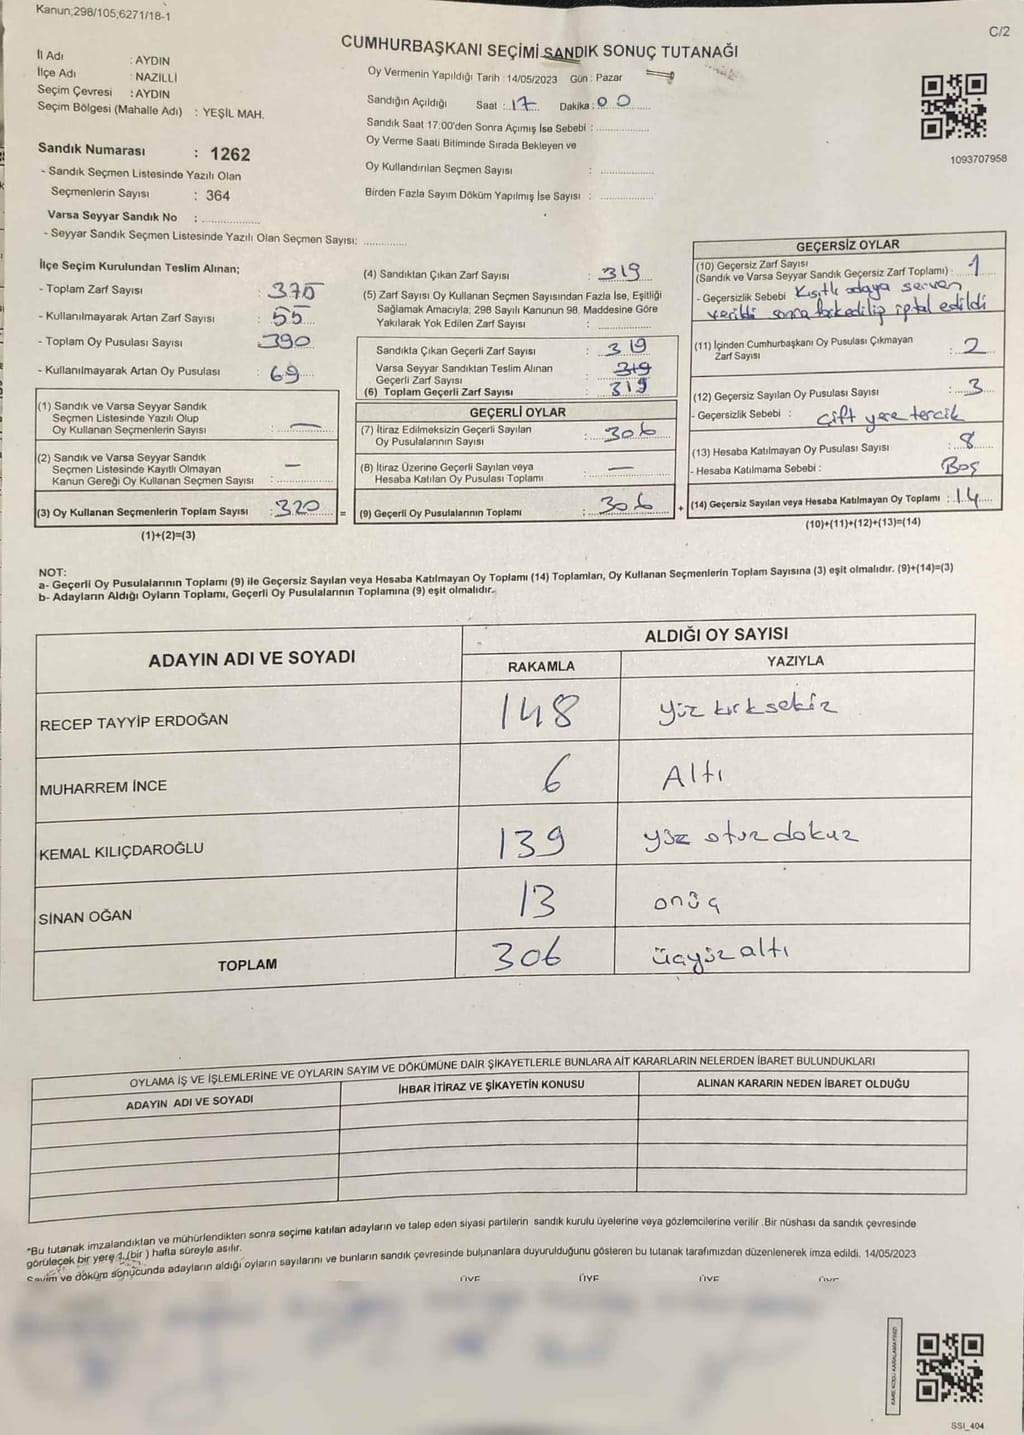 Kanun;298/105;6271/18-1
C/2
CUMHURBAŞKANI SEÇİMİ SANDIK SONUÇ TUTANAĞI
İl Adı : AYDIN
İlçe Adı : NAZİLLİ
Seçim Çevresi : AYDIN
Seçim Bölgesi (Mahalle Adı) : YEŞİL MAH.
Sandık Numarası : 1262
- Sandık Seçmen Listesinde Yazılı Olan
Seçmenlerin Sayısı : 364
Varsa Seyyar Sandık No :
- Seyyar Sandık Seçmen Listesinde Yazılı Olan Seçmen Sayısı:
Oy Vermenin Yapıldığı Tarih : 14/05/2023 Gün : Pazar
Sandığın Açıldığı Saat : 17 Dakika : 00
Sandık Saat 17:00'den Sonra Açımış İse Sebebi :
Oy Verme Saati Bitiminde Sırada Bekleyen ve
Oy Kullandırılan Seçmen Sayısı :
Birden Fazla Sayım Döküm Yapılmış İse Sayısı :
1093707958
İlçe Seçim Kurulundan Teslim Alınan;
- Toplam Zarf Sayısı : 375
- Kullanılmayarak Artan Zarf Sayısı : 55
- Toplam Oy Pusulası Sayısı : 390
- Kullanılmayarak Artan Oy Pusulası : 69
(1) Sandık ve Varsa Seyyar Sandık
Seçmen Listesinde Yazılı Olup
Oy Kullanan Seçmenlerin Sayısı : —
(2) Sandık ve Varsa Seyyar Sandık
Seçmen Listesinde Kayıtlı Olmayan
Kanun Gereği Oy Kullanan Seçmen Sayısı : —
(3) Oy Kullanan Seçmenlerin Toplam Sayısı : 320 =
(1)+(2)=(3)
(4) Sandıktan Çıkan Zarf Sayısı : 319
(5) Zarf Sayısı Oy Kullanan Seçmen Sayısından Fazla İse, Eşitliği
Sağlamak Amacıyla; 298 Sayılı Kanunun 98. Maddesine Göre
Yakılarak Yok Edilen Zarf Sayısı :
Sandıkta Çıkan Geçerli Zarf Sayısı : 319
Varsa Seyyar Sandıktan Teslim Alınan
Geçerli Zarf Sayısı : 319
(6) Toplam Geçerli Zarf Sayısı : 319
GEÇERLİ OYLAR
(7) İtiraz Edilmeksizin Geçerli Sayılan
Oy Pusulalarının Sayısı : 306
(8) İtiraz Üzerine Geçerli Sayılan veya
Hesaba Katılan Oy Pusulası Toplamı : —
(9) Geçerli Oy Pusulalarının Toplamı : 306 +
GEÇERSİZ OYLAR
(10) Geçersiz Zarf Sayısı
(Sandık ve Varsa Seyyar Sandık Geçersiz Zarf Toplamı) : 1
- Geçersizlik Sebebi Kısıtlı adaya
verildi sonra farkedilip iptal edildi
(11) İçinden Cumhurbaşkanı Oy Pusulası Çıkmayan
Zarf Sayısı : 2
(12) Geçersiz Sayılan Oy Pusulası Sayısı : 3
- Geçersizlik Sebebi : Çift yere tercik
(13) Hesaba Katılmayan Oy Pusulası Sayısı : 8
- Hesaba Katılmama Sebebi : Boş
(14) Geçersiz Sayılan veya Hesaba Katılmayan Oy Toplamı : 14
(10)+(11)+(12)+(13)=(14)
NOT:
a- Geçerli Oy Pusulalarının Toplamı (9) ile Geçersiz Sayılan veya Hesaba Katılmayan Oy Toplamı (14) Toplamları, Oy Kullanan Seçmenlerin Toplam Sayısına (3) eşit olmalıdır. (9)+(14)=(3)
b- Adayların Aldığı Oyların Toplamı, Geçerli Oy Pusulalarının Toplamına (9) eşit olmalıdır.
ADAYIN ADI VE SOYADI
ALDIĞI OY SAYISI
RAKAMLA YAZIYLA
RECEP TAYYİP ERDOĞAN 148 yüz kırksekiz
MUHARREM İNCE 6 Altı
KEMAL KILIÇDAROĞLU 139 yüz otuz dokuz
SİNAN OĞAN 13 onüç
TOPLAM 306 üçyüz altı
OYLAMA İŞ VE İŞLEMLERİNE VE OYLARIN SAYIM VE DÖKÜMÜNE DAİR ŞİKAYETLERLE BUNLARA AİT KARARLARIN NELERDEN İBARET BULUNDUKLARI
ADAYIN ADI VE SOYADI İHBAR İTİRAZ VE ŞİKAYETİN KONUSU ALINAN KARARIN NEDEN İBARET OLDUĞU
*Bu tutanak imzalandıktan ve mühürlendikten sonra seçime katılan adayların ve talep eden siyasi partilerin sandık kurulu üyelerine veya gözlemcilerine verilir .Bir nüshası da sandık çevresinde
görülecek bir yere 1 (bir ) hafta süreyle asılır.
Sayım ve döküm sonucunda adayların aldığı oyların sayılarını ve bunların sandık çevresinde bulunanlara duyurulduğunu gösteren bu tutanak tarafımızdan düzenlenerek imza edildi. 14/05/2023
ÜYE ÜYE ÜYE ÜYE
SSI_404